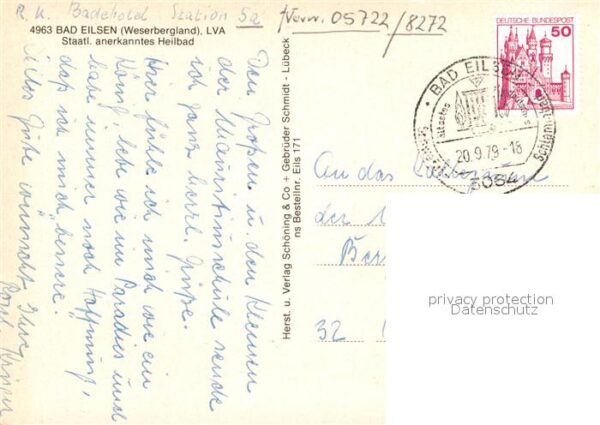 R. K. Badehotel Station 5a
Verw. 05722/8272
4963 BAD EILSEN (Weserbergland), LVA
Staatl. anerkanntes Heilbad
DEUTSCHE BUNDESPOST
50
BAD EILSEN
20.9.79-18
3064
Herst. u. Verlag Schöning & Co + Gebrüder Schmidt - Lübeck
ns Bestellnr. Eils 171
Den Großen u. den Kleinen
der
sende
ich ganz herzl. Grüße.
Hier fühle ich mich wie ein
König
wie im Paradies und
habe immer noch Hoffnung,
daß ich mich "bessere".
Alles Gute wünscht Ihre
An das
der
32
privacy protection
Datenschutz